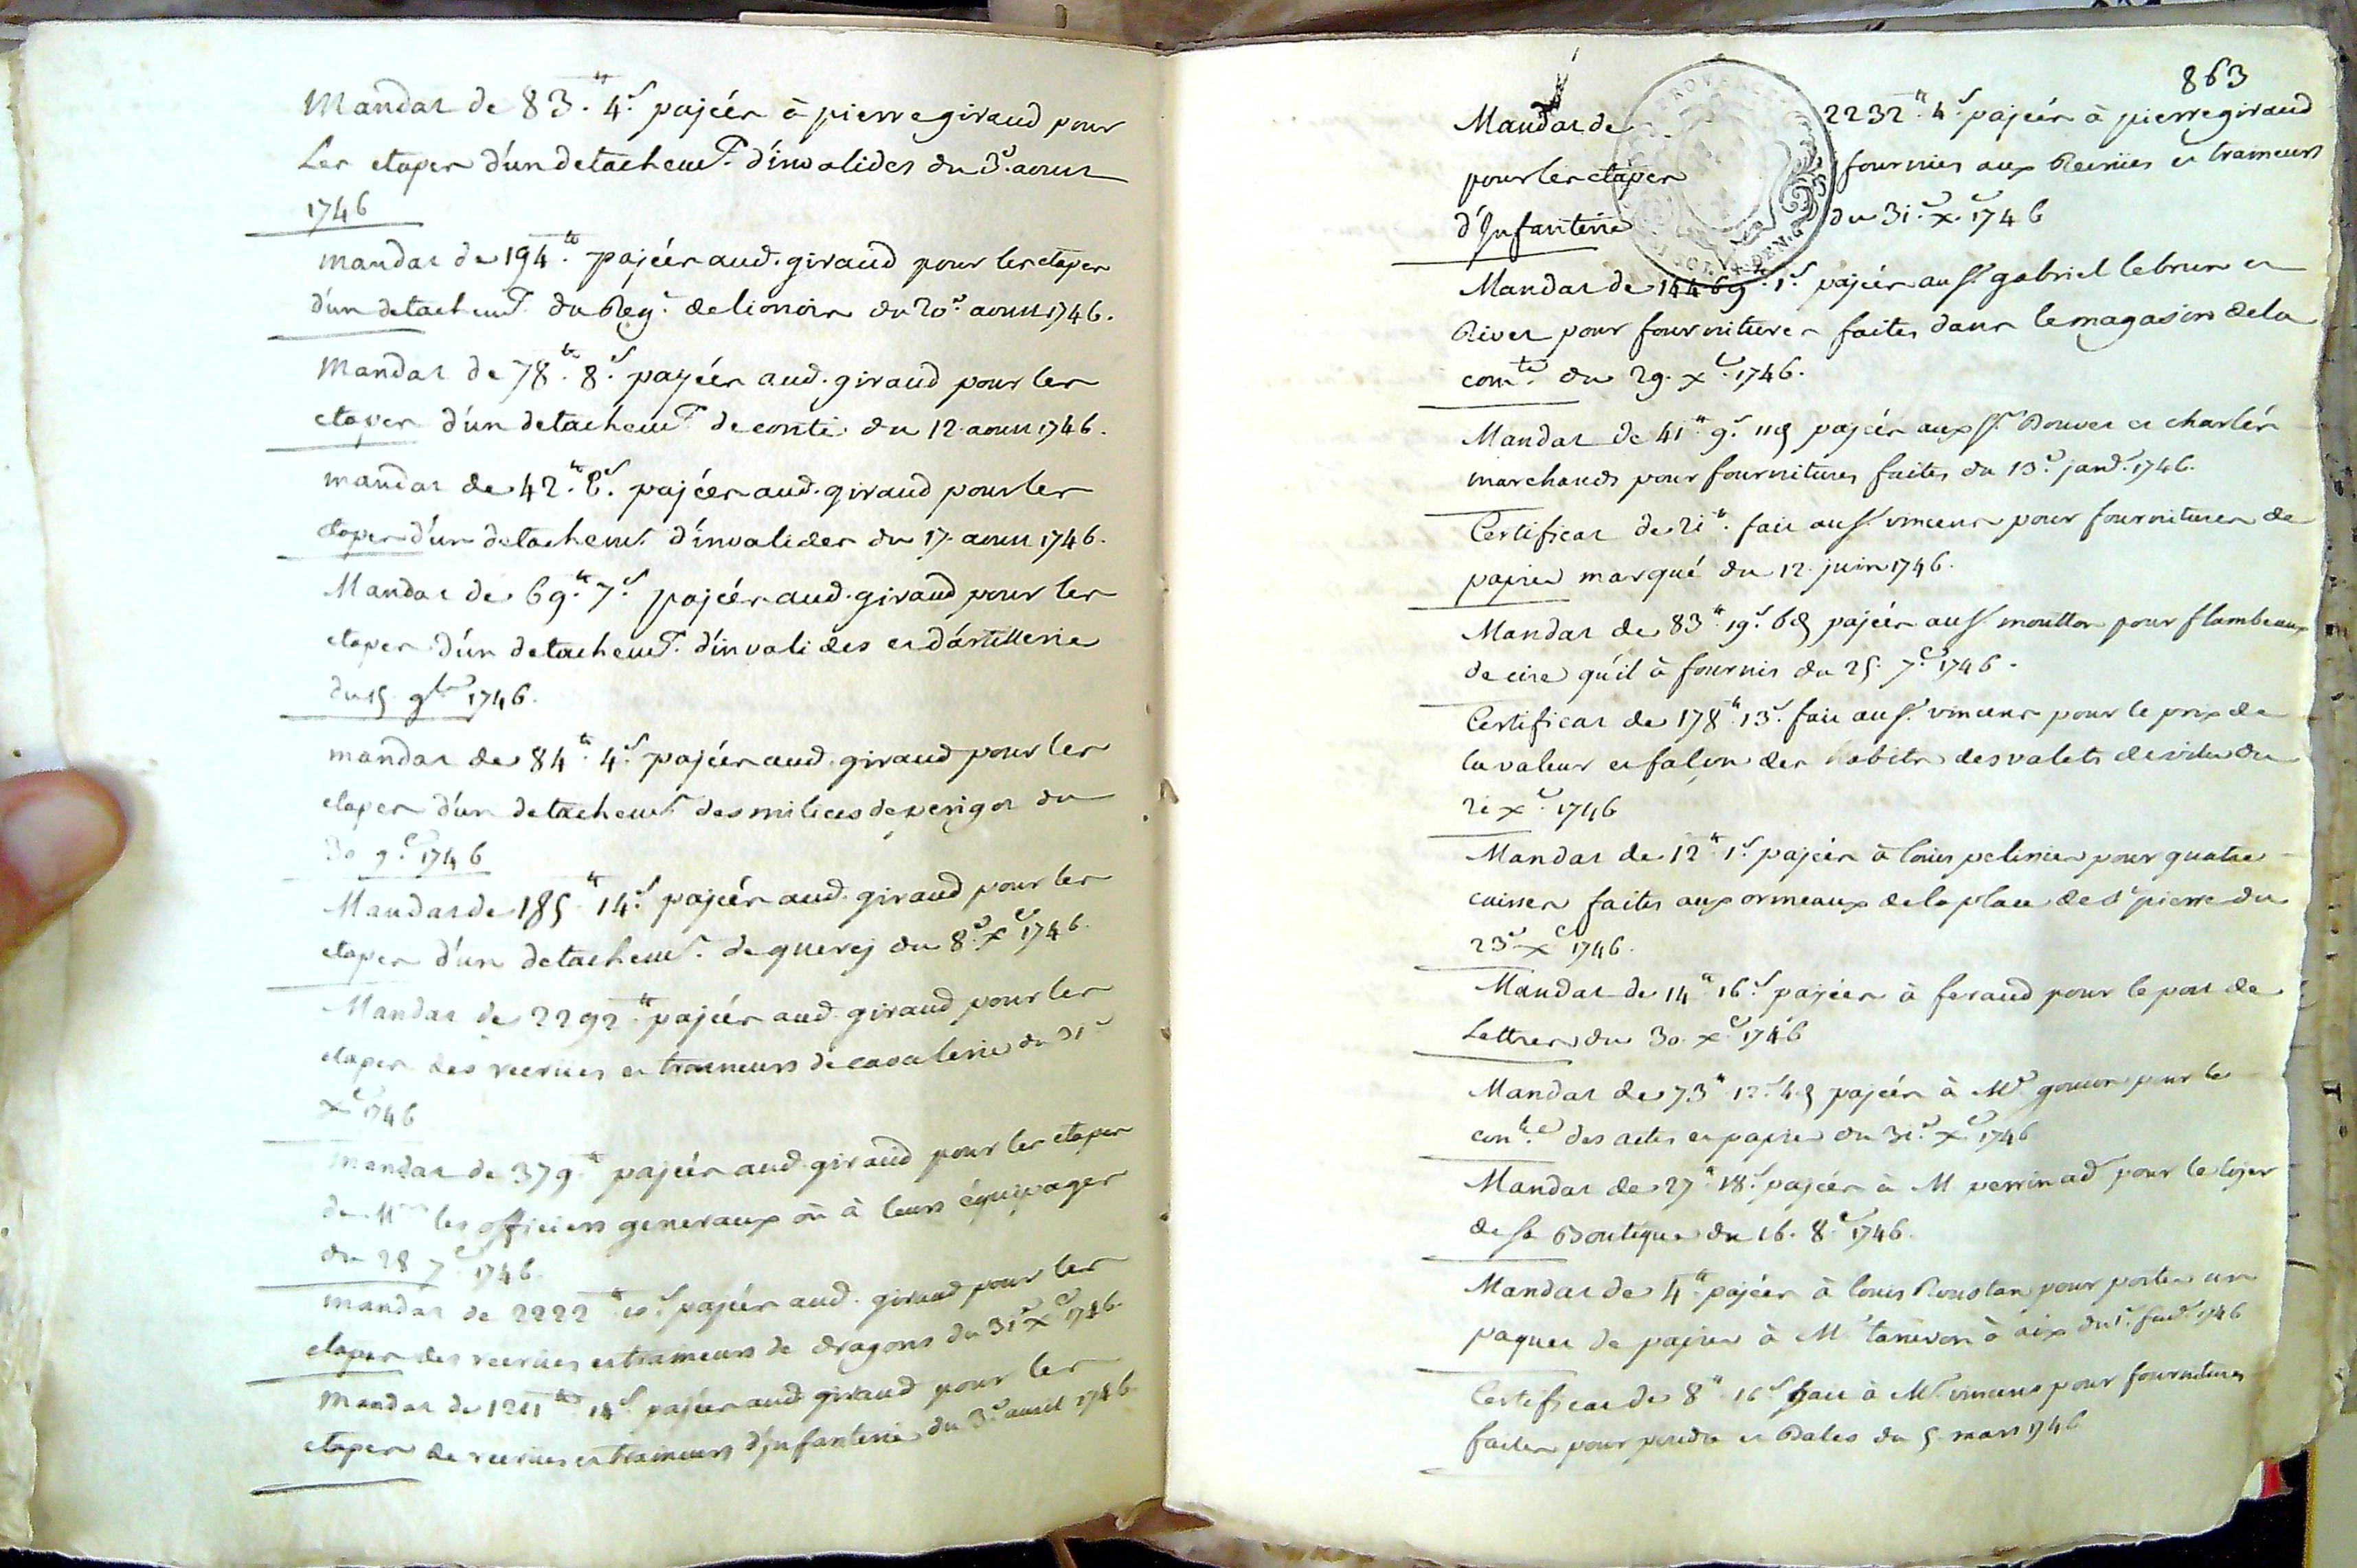 Mandat de 83.lt 4.s payées à pierre giraud pour
Les etapes d'un detachemt. d'invalides du 3.e aoust
1746
mandat de 194.lt payées aud. giraud pour les etapes
d'un detachemt. du Reg.t de lionois du 20.e aoust 1746.
Mandat de 78.lt 8.s payées aud. giraud pour les
etapes d'un detachemt. de conti du 12. aoust 1746.
mandat de 42.lt payées aud. giraud pour les
etapes d'un detachemt. d'invalides du 17. aoust 1746.
Mandat de 69.lt 7.s payées aud. giraud pour les
etapes d'un detachemt. d'invalides et d'artillerie
du 15. 9bre 1746.
mandat de 84.lt 4.s payées aud. giraud pour les
etapes d'un detachemt. des milices de perigor du
30 9.e 1746
Mandat de 185.lt 14.s payées aud. giraud pour les
etapes d'un detachemt. de quercj du 8.e x.e 1746.
Mandat de 2292.lt payées aud. giraud pour les
etapes des recrües et traineurs de cavalerie du 31.e
x.e 1746
Mandat de 379.lt payées aud. giraud pour les etapes
de Mrs les officiers generaux ou à leurs équipages
du 28 7.e 1746.
mandat de 2222.lt 10.s payées aud. giraud pour les
etapes des recrües et traineurs de dragons du 31.e x.e 1746.
Mandat de 1211.lt 14.s payées aud. giraud pour les
etapes de recrües et traineurs d'jnfanterie du 3.e avril 1746.
863
Mandat de 2232.lt 4.s payées à pierre giraud
pour les etapes fournies aux Recrües et traineurs
d'Jnfanterie du 31.e x.e 1746
Mandat de 14469.lt 1.s payées au sr. gabriel lebrun et
River pour fournitures faites dans le magasin de la
com.té du 29. x.e 1746.
Mandat de 41.lt 9.s 11d payées aux srs. Bouver et charles
marchands pour fournitures faites du 13.e janv. 1746.
Certificat de 21.lt fait au sr. vincens pour fournitures de
papier marqué du 12. juin 1746.
Mandat de 83.lt 19.s 6d payées au sr. moutton pour flambeaux
de cire qu'il à fournis du 25. 7.e 1746.
Certificat de 178.lt 13.s fait au sr. vincens pour le prix de
la valeur et falon des habits des valets de ville du
21 x.e 1746
Mandat de 12.lt 1.s payées à louis pelissier pour quatre
caisses faites aux ormeaux de la place de St pierre du
23.e x.e 1746.
Mandat de 14.lt 16.s payées à feraud pour le port de
Lettres du 30. x.e 1746
Mandat de 73.lt 12.s 4d payées à Mr. gouion pour le
con.lle des actes et papier du 31.e x.e 1746
Mandat de 27.lt 18.s payées à M perrin ad. pour le loyer
de sa Boutique du 16. 8.e 1746.
Mandat de 4.lt payées à louis Roustan pour porter un
paquet de papier à Mr. à aix du 1.r 1746
Certificat de 8.lt 16.s fait à Mr. vincens pour fournitures
faites pour poudre et Bales du 5. mars 1746